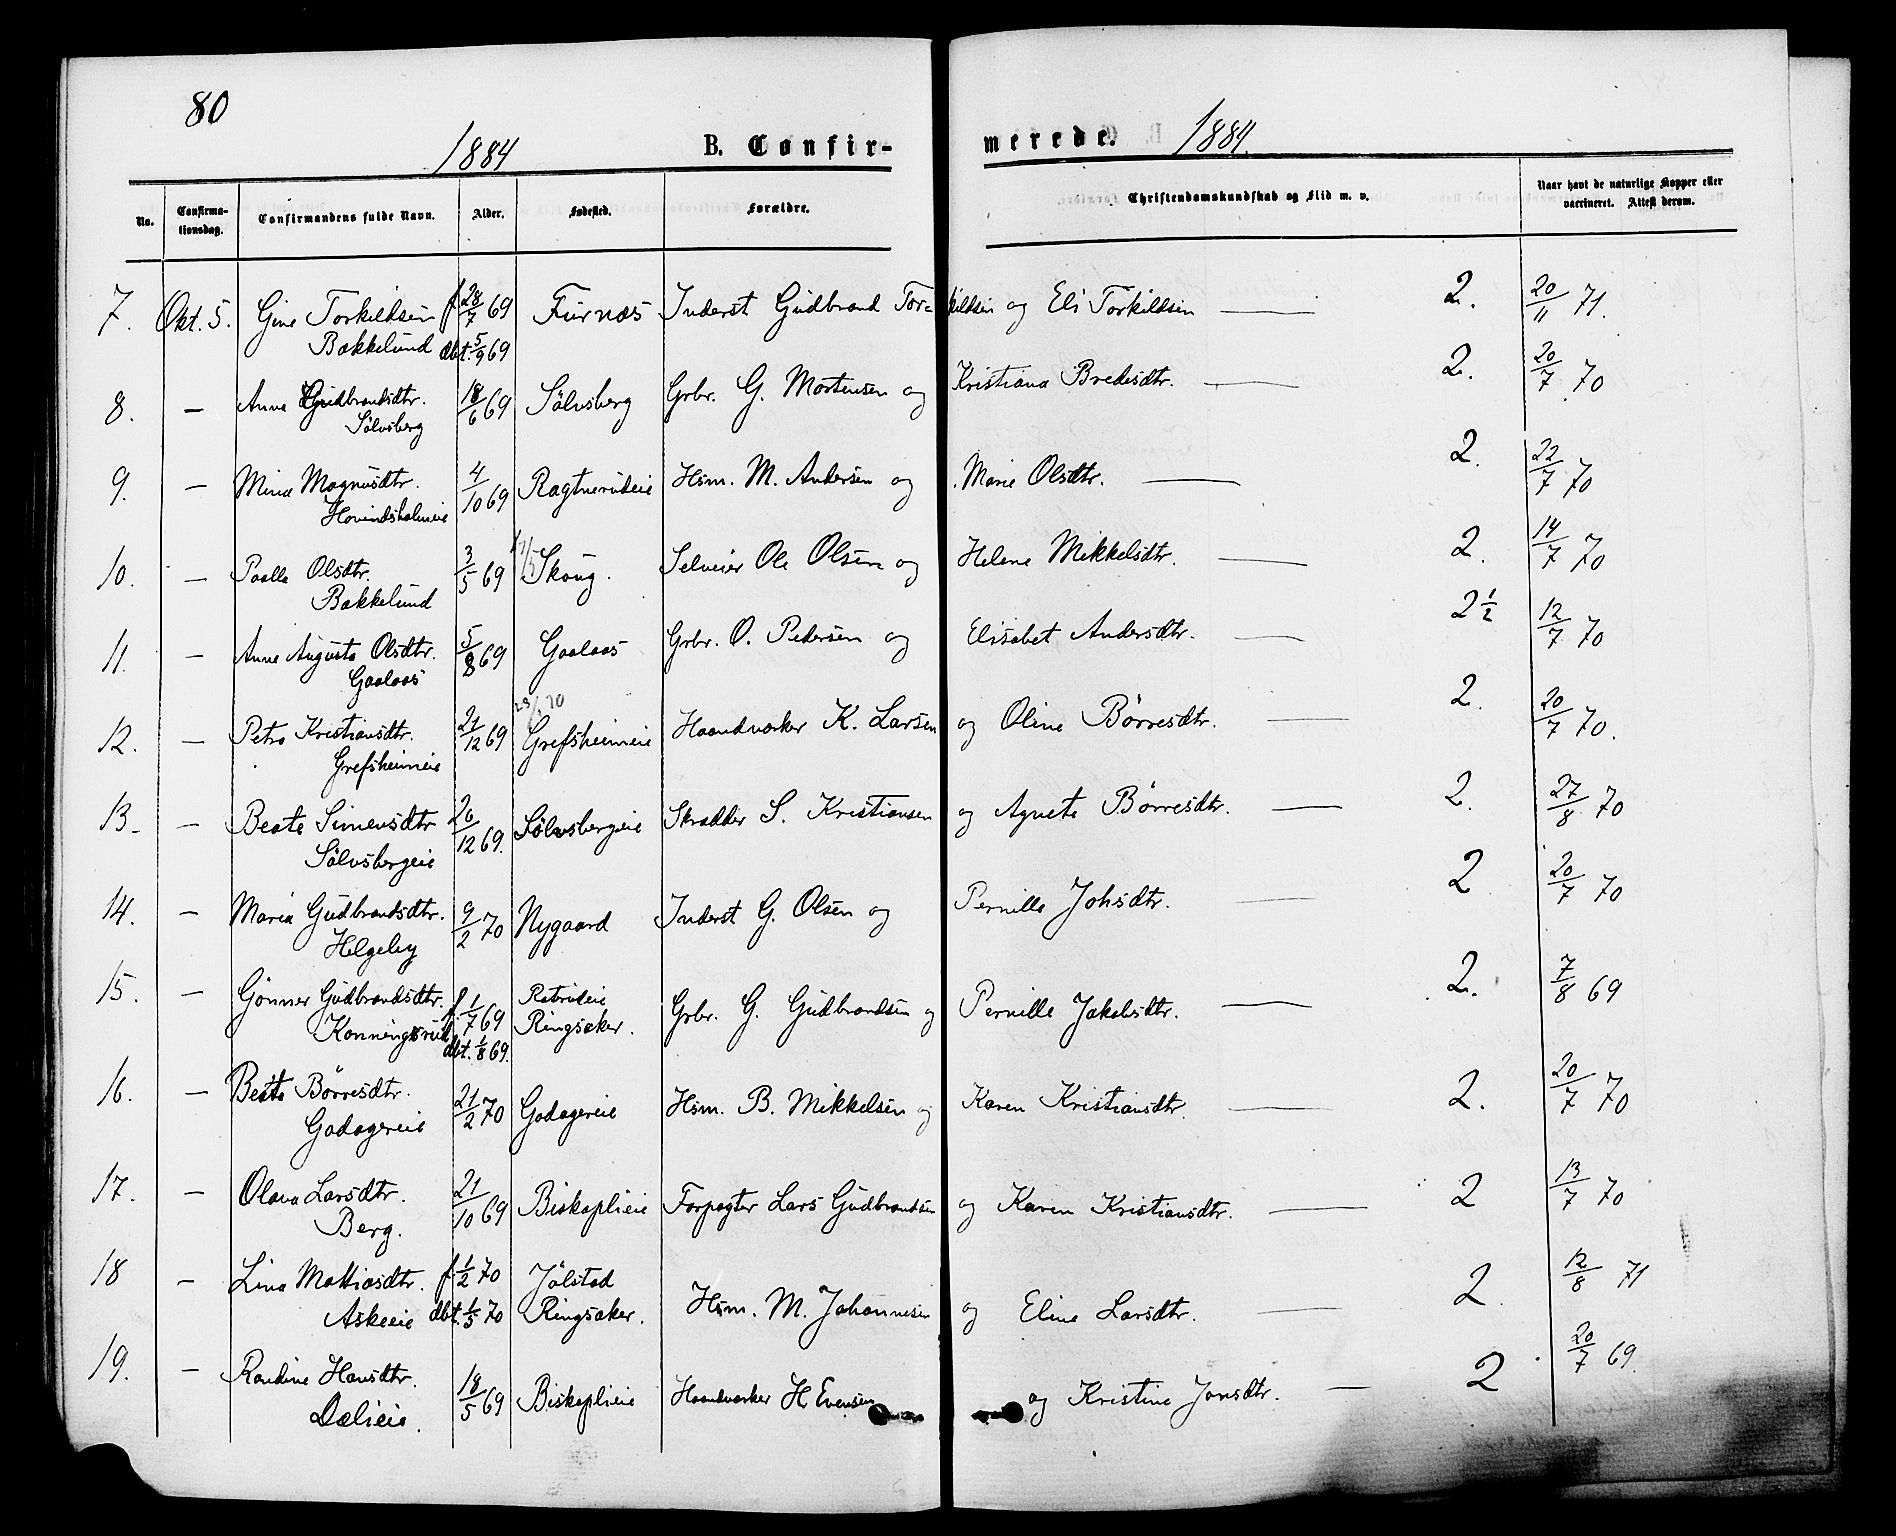 80
1884 B. Confir- merede. 1884.
No. Confirma-tionsdag. Confirmandens fulde Navn. Alder. Fødested. Forældre. Christendomskundskab og Flid m. v. Naar havt de naturlige Kopper eller vaccineret. Attest derom.
7. Okt. 5. Gine Torkildsen f. 28/7 69 Furnæs Inderst Gudbrand Tor=kildsen og Eli Torkildsen — 2. 20/11 71.
Bakkelund dbt. 5/9 69
8. — Anna Gudbrandsdtr. 18/6 69 Sølvsberg Grbr. G. Mortensen og Kristiana Bredesdtr. — 2. 20/7 70
Sølvsberg
9. — Mina Magnusdtr. 4/10 69 Hsm. M. Andersen og Marie Olsdtr. — 2. 22/7 70
Hovindsholmeie
10. — Olsdtr. 3/5 69 Skoug. Selveier Ole Olsen og Helene Mikkelsdtr. — 2. 14/7 70
Bakkelund
11. — Anne Augusta Olsdtr. 5/8 69 Gaalaas Grbr. O. Pedersen og Elisabet Andersdtr. — 2 1/2 12/7 70
Gaalaas
12. — Petra Kristiansdtr. 21/12 69 Grefsheimeie Haandværker K. Larsen og Oline Børresdtr. — 2. 20/7 70.
Grefsheimeie
13. — Beate Simensdtr 26/12 69. Sølvsbergeie Skrædder S. Kristiansen og Agnete Børresdtr. — 2. 27/8 70
Sølvsbergeie
14. — Maria Gudbrandsdtr. 9/2 70 Nygaard Inderst G. Olsen og Pernille Johsdtr. — 2. 20/7 70
Helgeby
15. — Gønner Gudbrandsdtr. f. 1/7 69 Ringsaker. Grbr. G. Gudbrandsen og Pernille Jakobsdtr. — 2. 7/8 69
Konningsrud dbt. 1/8 69.
16. — Beate Børresdtr. 21/2 70 Godagereie Hsm. B. Mikkelsen og Karen Kristiansdtr. — 2. 20/7 70
Godagereie
17. — Olava Larsdtr. 21/10 69 Biskoplieie Forpagter Lars Gudbrandsen og Karen Kristiansdtr. — 2 13/7 70
Berg.
18 — Lina Mattiasdtr. f. 1/2 70 Jølstad Hsm. M. Johannesen og Eline Larsdtr. — 2. 12/8 71
Askeeie dbt. 1/5 70 Ringsaker.
19. — Randine Hansdtr. 18/5 69 Biskoplieie Haandværker H Evensen og Kristine Jonsdtr. — 2 20/7 69.
Dælieie.